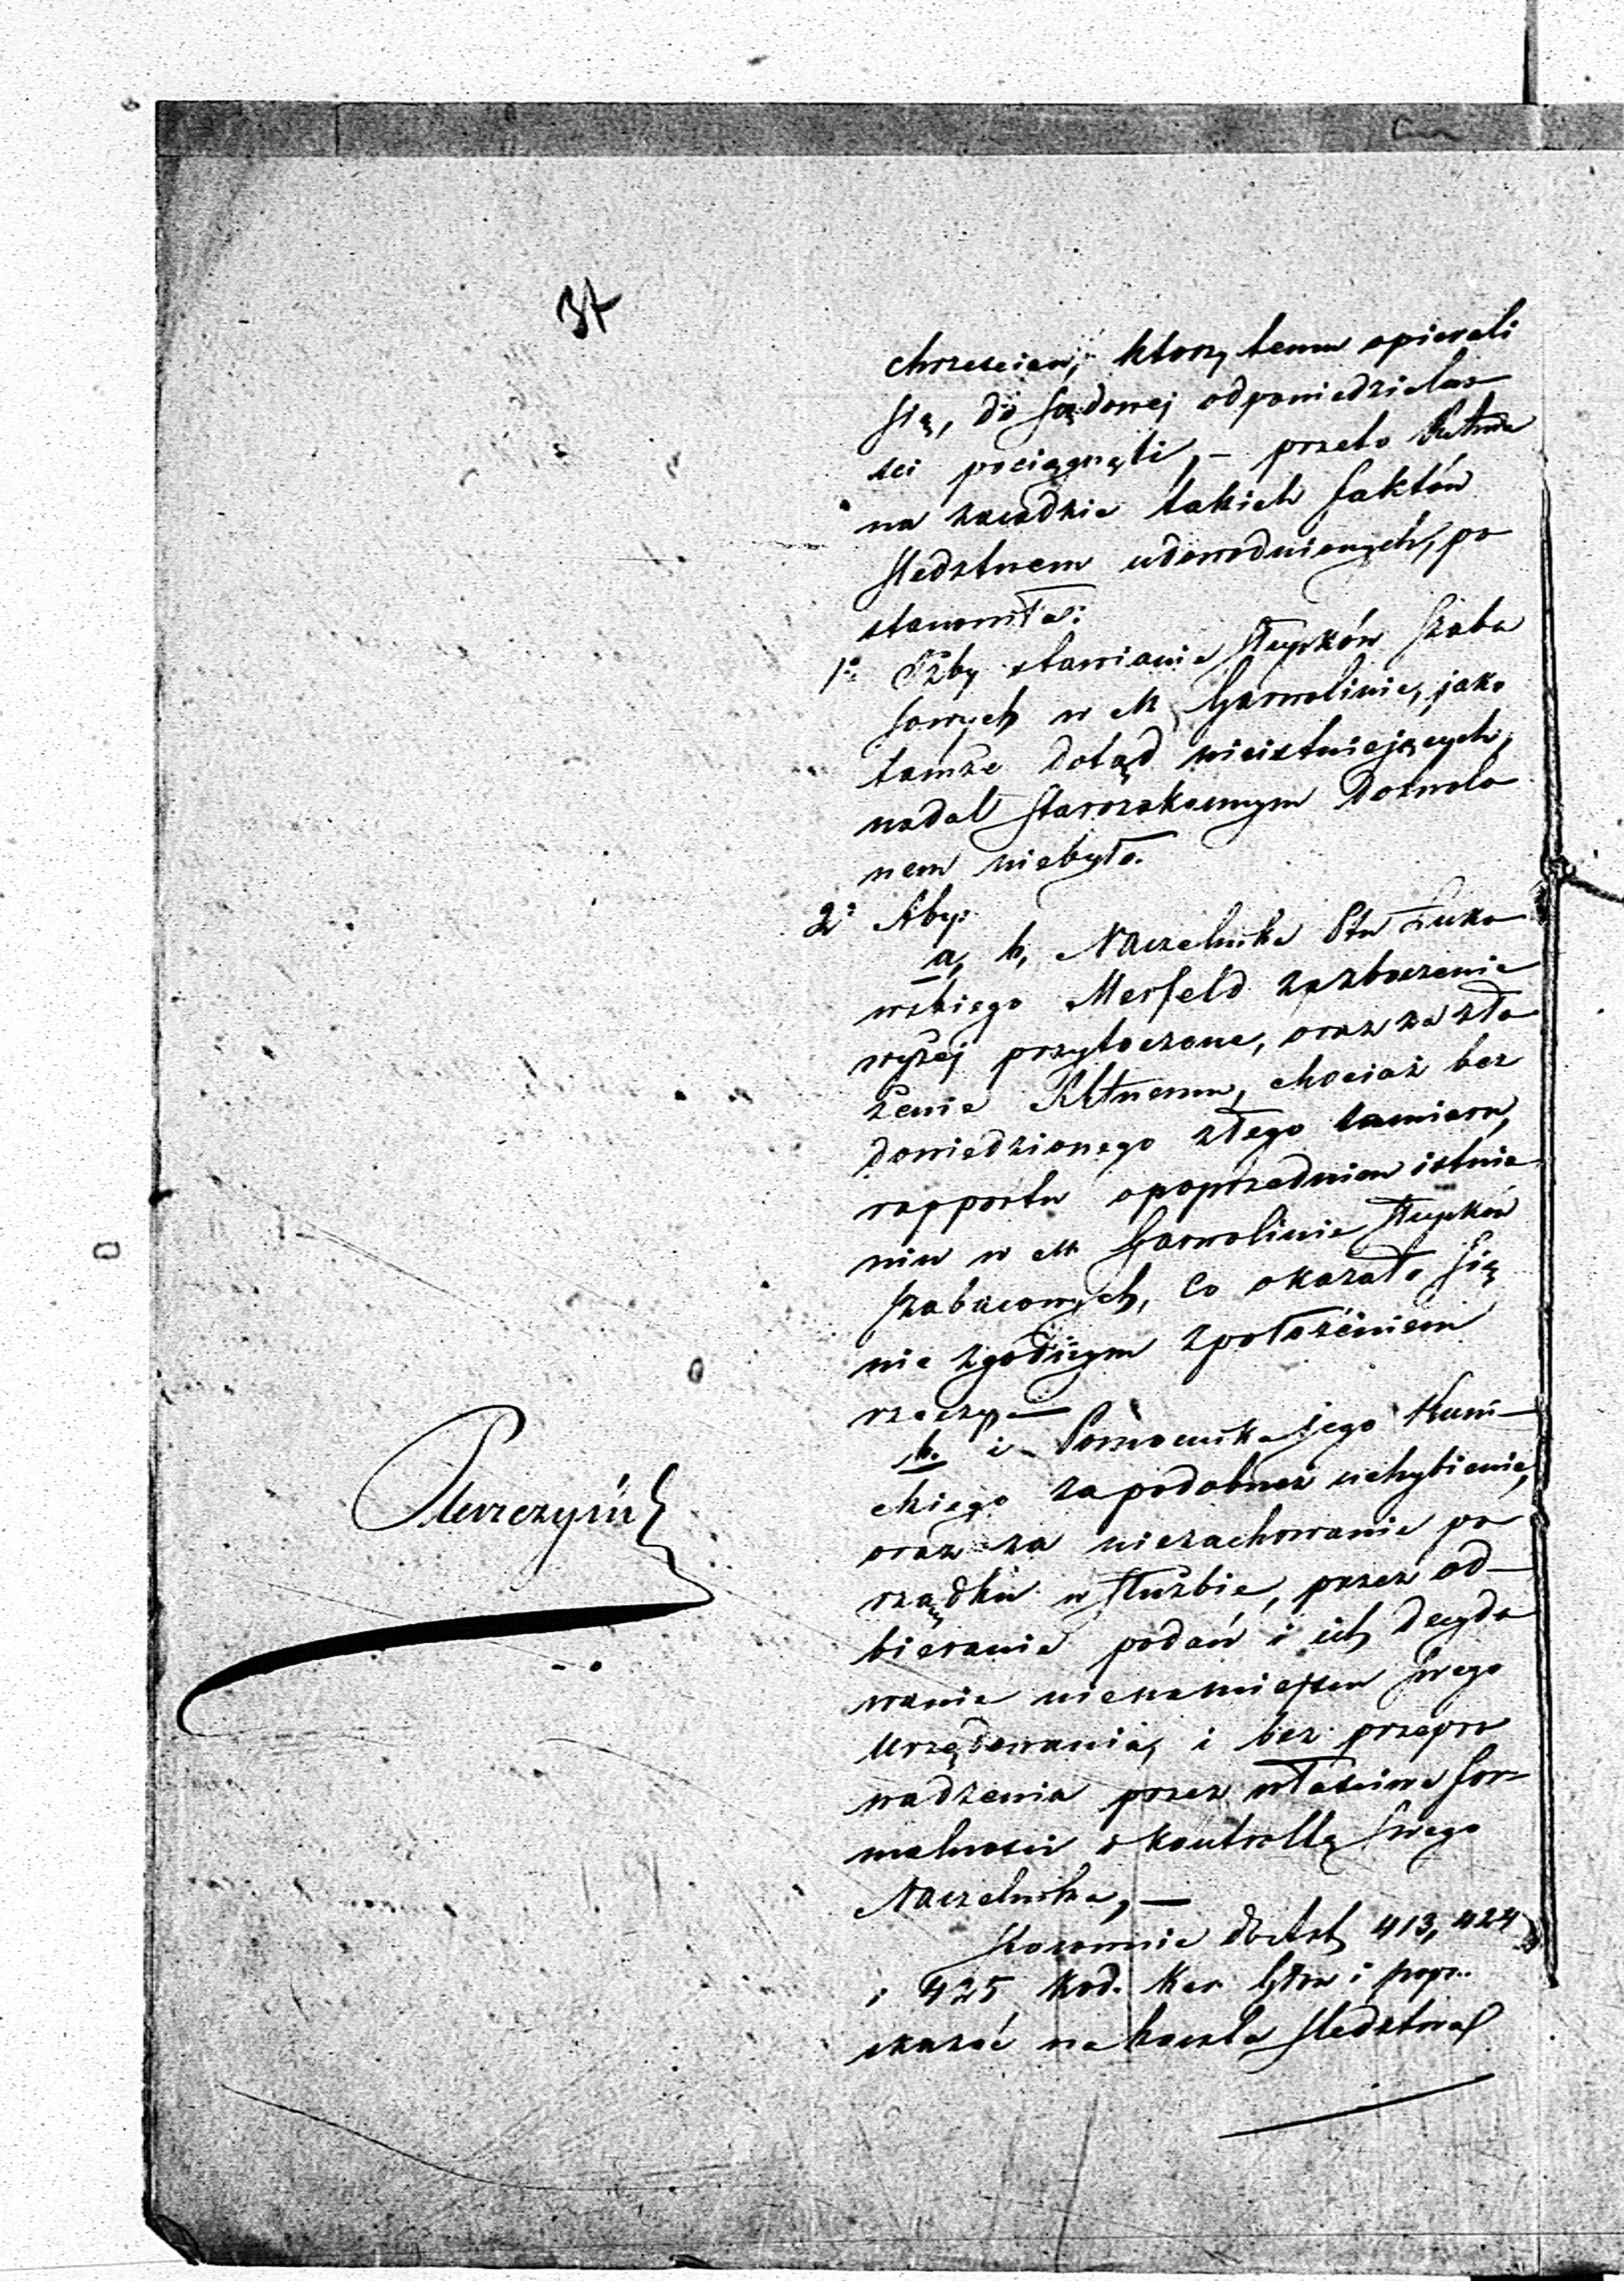 37
chrzescian, ktorzy temu opierali
się, do sądowej odpowiedzialno-
sci pociągnęti, – przeto
na zasadzie takich faktów
sledztwem udowodnionych, po
stanowiła:
1º Ażby stawianie słupków szaba
sowych w M Garwolinie, jako
tamże dotąd nieistniejących,
nadal starozakonnym dozwolo
nem niebyło.
2º Aby:
a, b, Naczelnika Ptu Łuko
wskiego Merfeld za zboczenie
wyżej przytoczone, oraz za zło
żenie chociaż bez
dowiedzionego złego zamiaru,
rapportu o poprzedniem istnie
niu w M Garwolinie słupków
szabasowych, co okazało się
nie zgodnym z położeniem
rzeczy –
b. i Pomocnika jego Kuni-
ckiego za podobneż uchybienie,
oraz za niezachowanie po
rządku w służbie, przez od-
bieranie podań i ich decydo
wanie nienamiejscu swego
urzędowania, i bez przepro
wadzenia przez właściwe for-
malności i kontrollę swego
Naczelnika, –
Stosownie do Art 413, 424
i 425 Kod. Kar Głów i popr.
skazać na koszta sledztwa